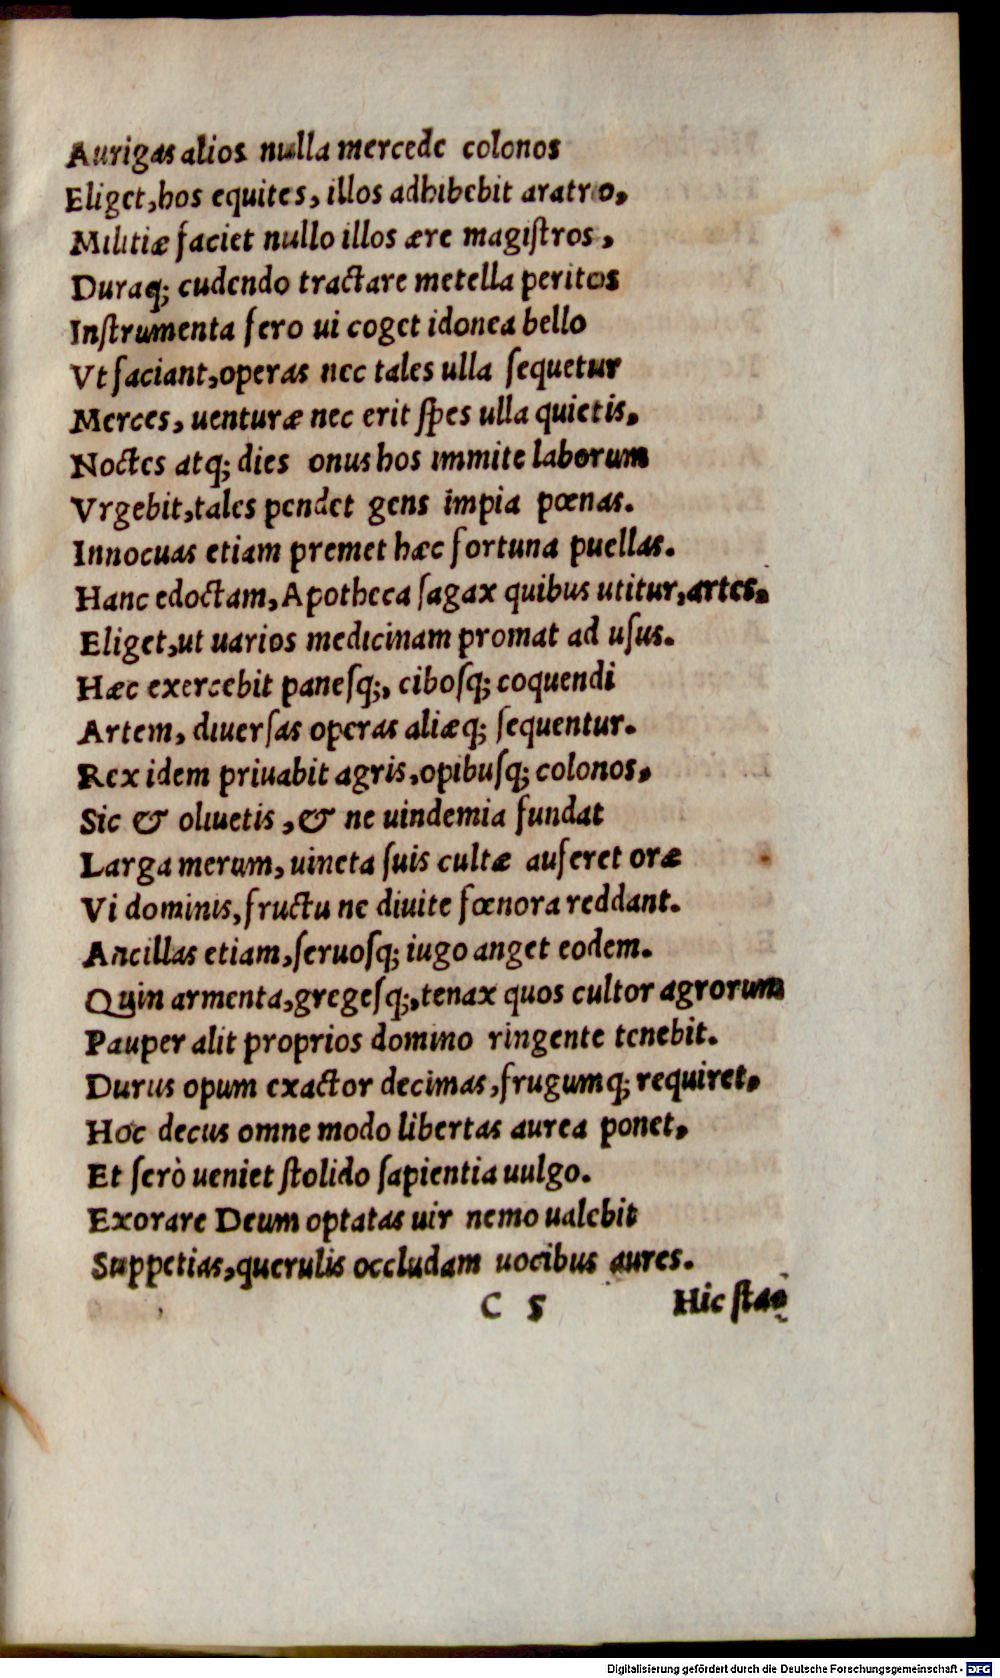 Aurigas alios nulla mercede colonos
Eliget,hos equites, illos adhibebit aratro,
Militiæ faciet nullo illos ære magiſtros,
Duraq; cudendo tractare metella peritos
Inſtrumenta fero ui coget idonea bello
Vt faciant,operas nec tales ulla ſequetur
Merces, uenturæ nec erit ſpes ulla quietis,
Noctes atq; dies onus hos immite laborum
Vrgebit,tales pendet gens impia pœnas.
Innocuas etiam premet hæc fortuna puellas.
Hanc edoctam, Apotheca ſagax quibus utitur,artes,
Eliget,ut uarios medicinam promat ad uſus.
Hæc exercebit paneſq;, ciboſq; coquendi
Artem, diuerſas operas aliæq; ſequentur.
Rex idem priuabit agris,opibuſq; colonos,
Sic & oliuetis ,& ne uindemia fundat
Larga merum, uineta ſuis cultæ auferet oræ
Vi dominis,fructu ne diuite fœnora reddant.
Ancillas etiam,ſeruoſq; iugo anget eodem.
Quin armenta,gregeſq;,tenax quos cultor agrorum
Pauper alit proprios domino ringente tenebit.
Durus opum exactor decimas,frugumq; requiret,
Hoc decus omne modo libertas aurea ponet,
Et ſerò ueniet ſtolido ſapientia uulgo.
Exorare Deum optatas uir nemo ualebit
Suppetias,querulis occludam uocibus aures.
C 5 Hic ſtaṭ
Digitalisierung gefördert durch die Deutsche Forschungsgemeinschaft - DFG